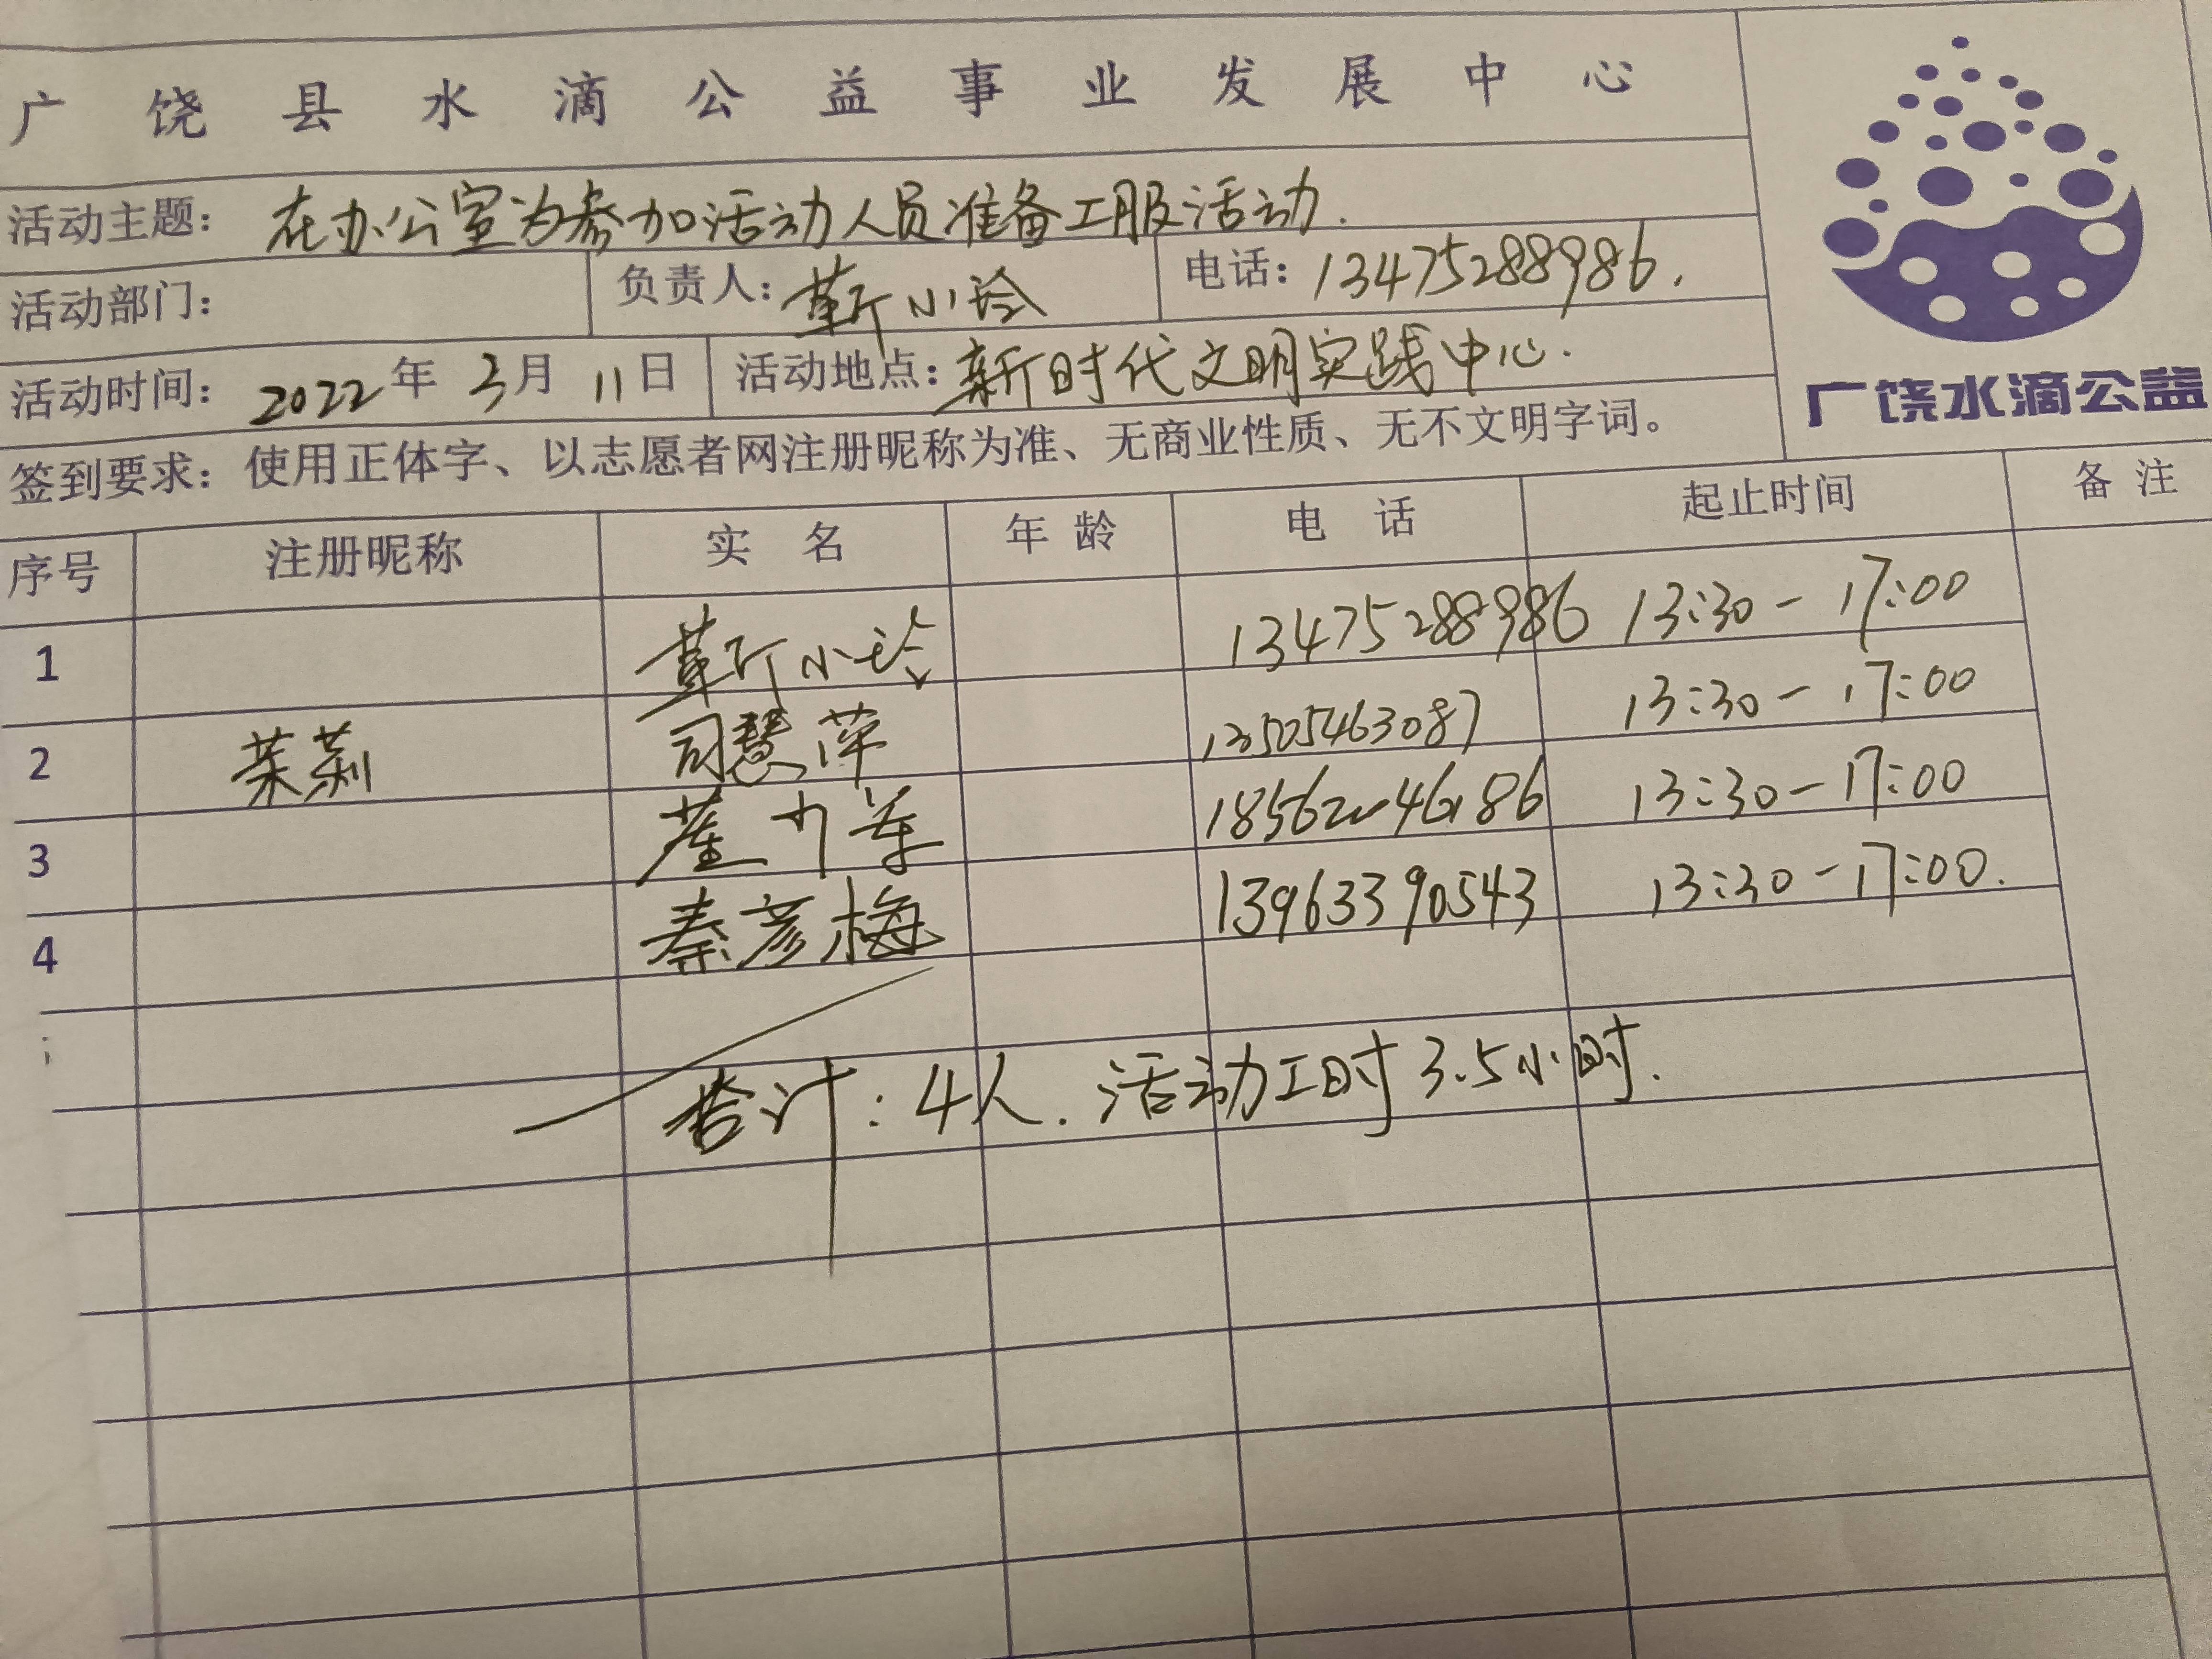 广饶县水滴公益事业发展中心
活动主题：在办公室为参加活动人员准备工服活动.
活动部门： 负责人：靳小玲 电话：13475288986.
活动时间：2022年3月11日 活动地点：新时代文明实践中心.
广饶水滴公益
签到要求：使用正体字、以志愿者网注册昵称为准、无商业性质、无不文明字词。
序号 注册昵称 实名 年龄 电话 起止时间 备注
1 靳小玲 13475288986 13:30-17:00
2 茉莉 司慧萍 13:30-17:00
3 13:30-17:00
4 秦彦梅 13963390543 13:30-17:00.
合计：4人.活动工时3.5小时.